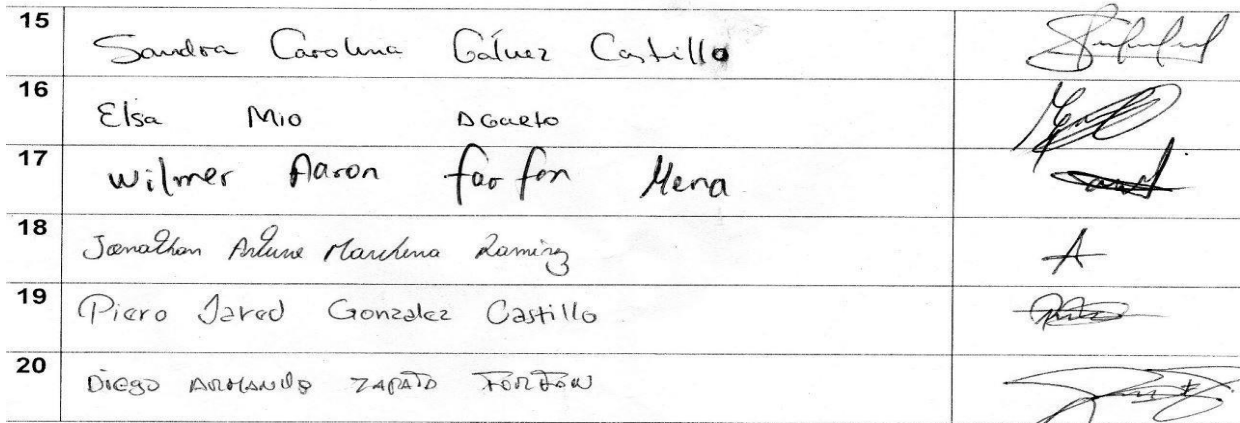 15 Sandra Carolina Gálvez Castillo
16 Elsa Mio
17 Wilmer Aaron farfan Mena
18 Jonathan Arturo Marchena Ramirez
19 Piero Jared Gonzalez Castillo
20 Diego ARMANDO ZAPATA